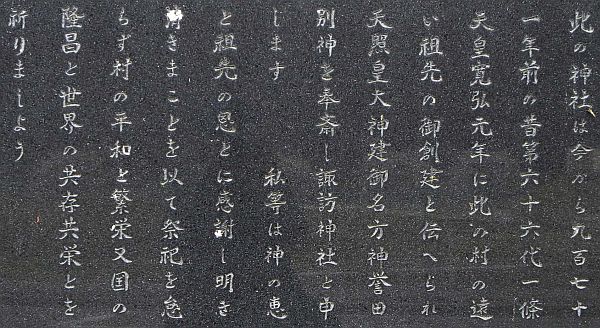 此の神社は今から九百七十
一年前の昔第六十六代一條
天皇寛弘元年に此の村の遠
い祖先の御創建と伝へられ
天照皇大神建御名方神誉田
別神を奉斎し諏訪神社と申
します　　　私等は神の恵
と祖先の恩とに感謝し明き
清きまことを以て祭祀を怠
らず村の平和と繁栄又国の
隆昌と世界の共存共栄とを
祈りましよう